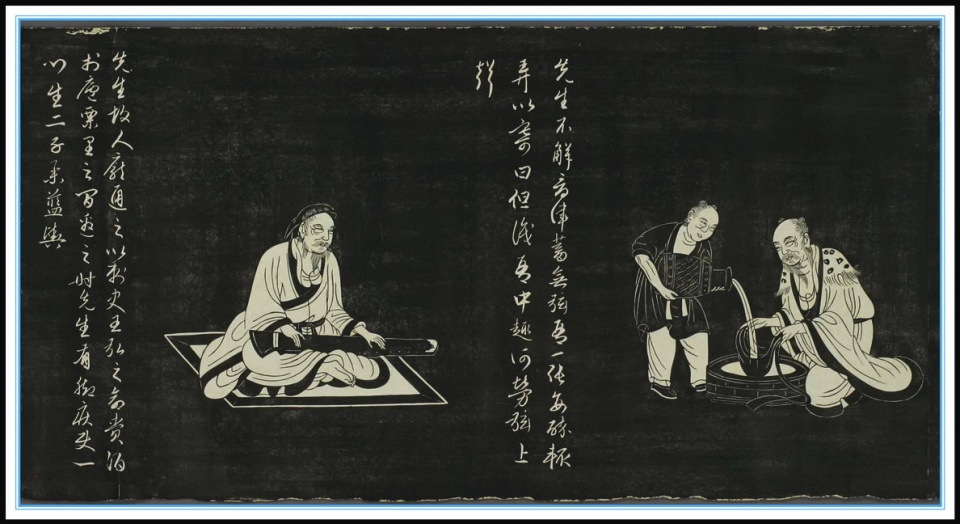 先生不解音律蓄無弦琴一張每輒
弄以寄曰但識琴中趣何勞弦上
聲
先生故人龐通之以刺史王弘之命賫酒
於廬栗里之間邀之時先生有腳疾使一
門生二子舁籃輿